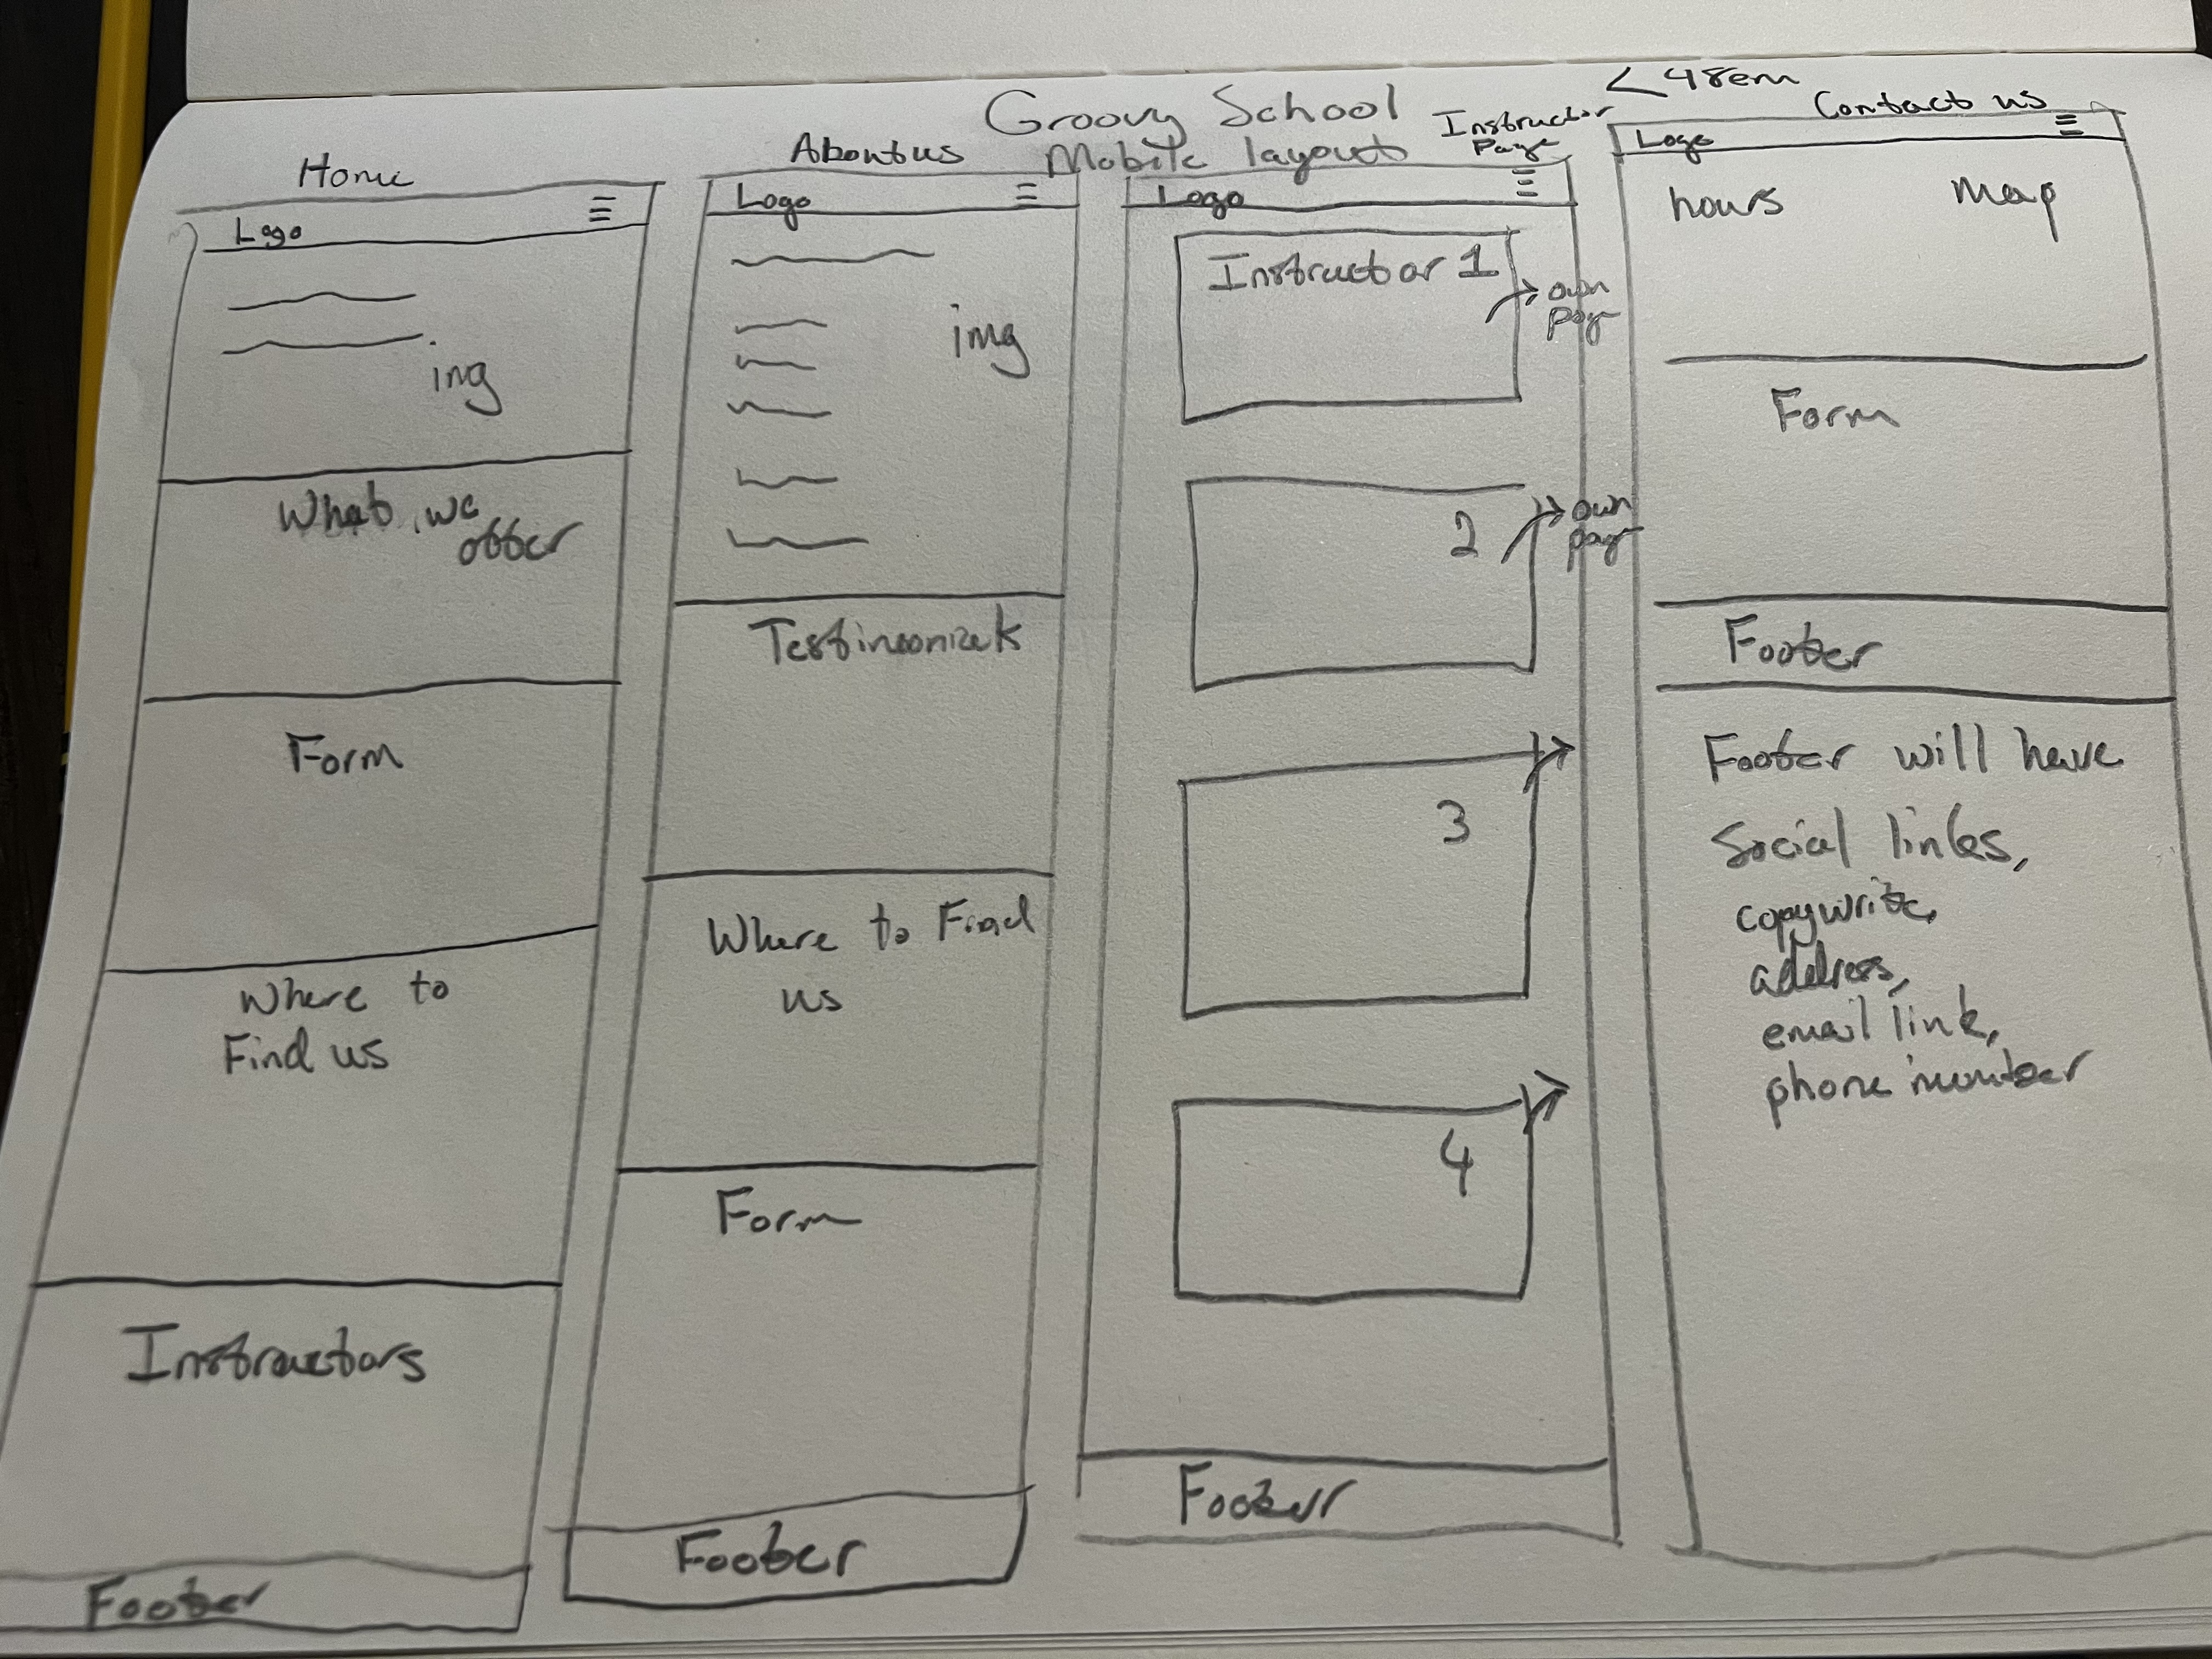 Groovy School
Mobile layout
< 48em
Home
Logo
img
What we
offer
Form
Where to
Find us
Instructors
Footer
About us
Logo
img
Testimonials
Where to Find
us
Form
Footer
Instructor
Page
Logo
Instructor 1
own
page
2
own
page
3
4
Footer
Contact us
Logo
hours
Map
Form
Footer
Footer will have
Social links,
copywrite,
address,
email link,
phone number